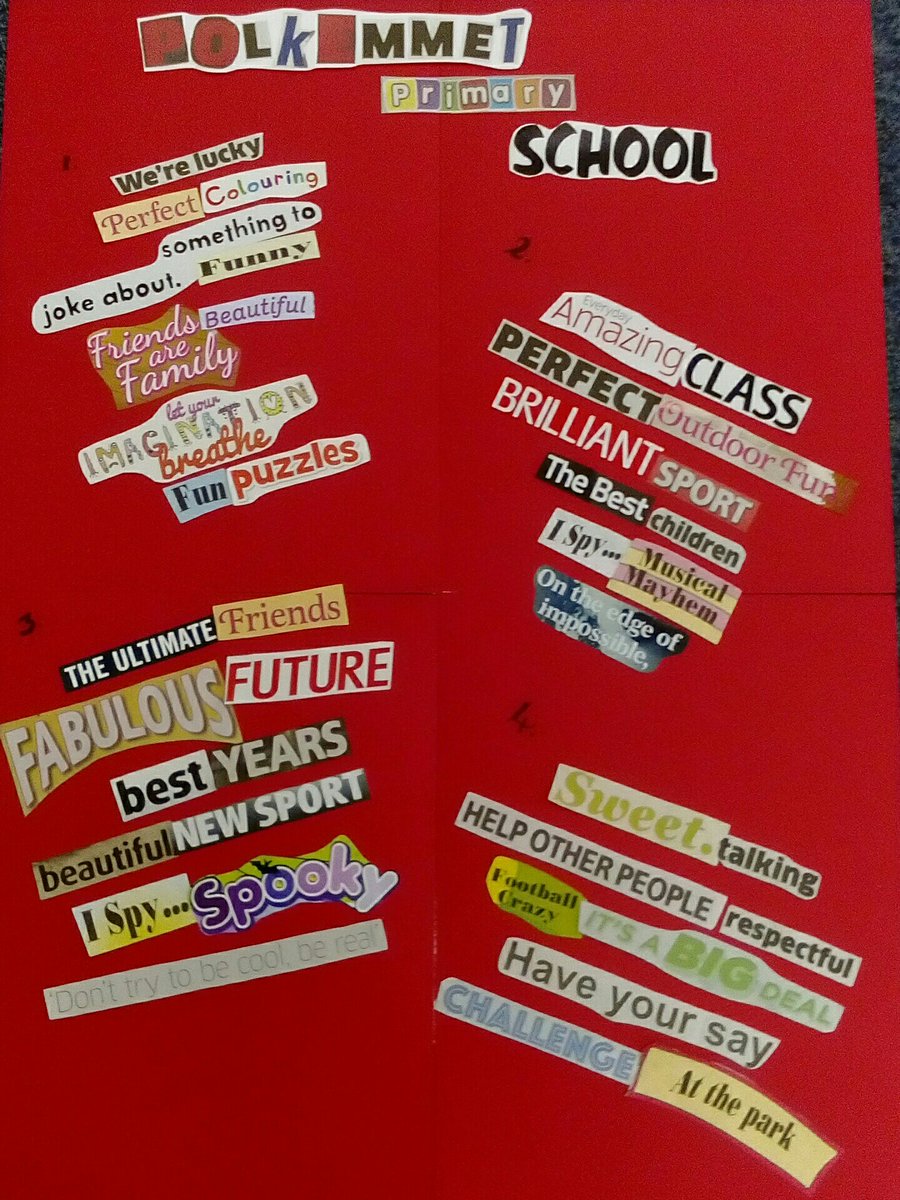 POLKEMMET
Primary
SCHOOL
1
We're lucky
Perfect Colouring
something to
joke about. Funny
Friends are Family Beautiful
let your
IMAGINATION
breathe
Fun puzzles
2
Everyday
Amazing CLASS
PERFECT Outdoor Fur
BRILLIANT SPORT
The Best children
I Spy... Musical Mayhem
On the edge of
impossible,
3
THE ULTIMATE Friends
FABULOUS FUTURE
best YEARS
beautiful NEW SPORT
I Spy... Spooky
'Don't try to be cool, be real'
4
Sweet. talking
HELP OTHER PEOPLE respectful
Football Crazy IT'S A BIG DEAL
Have your say
CHALLENGE At the park